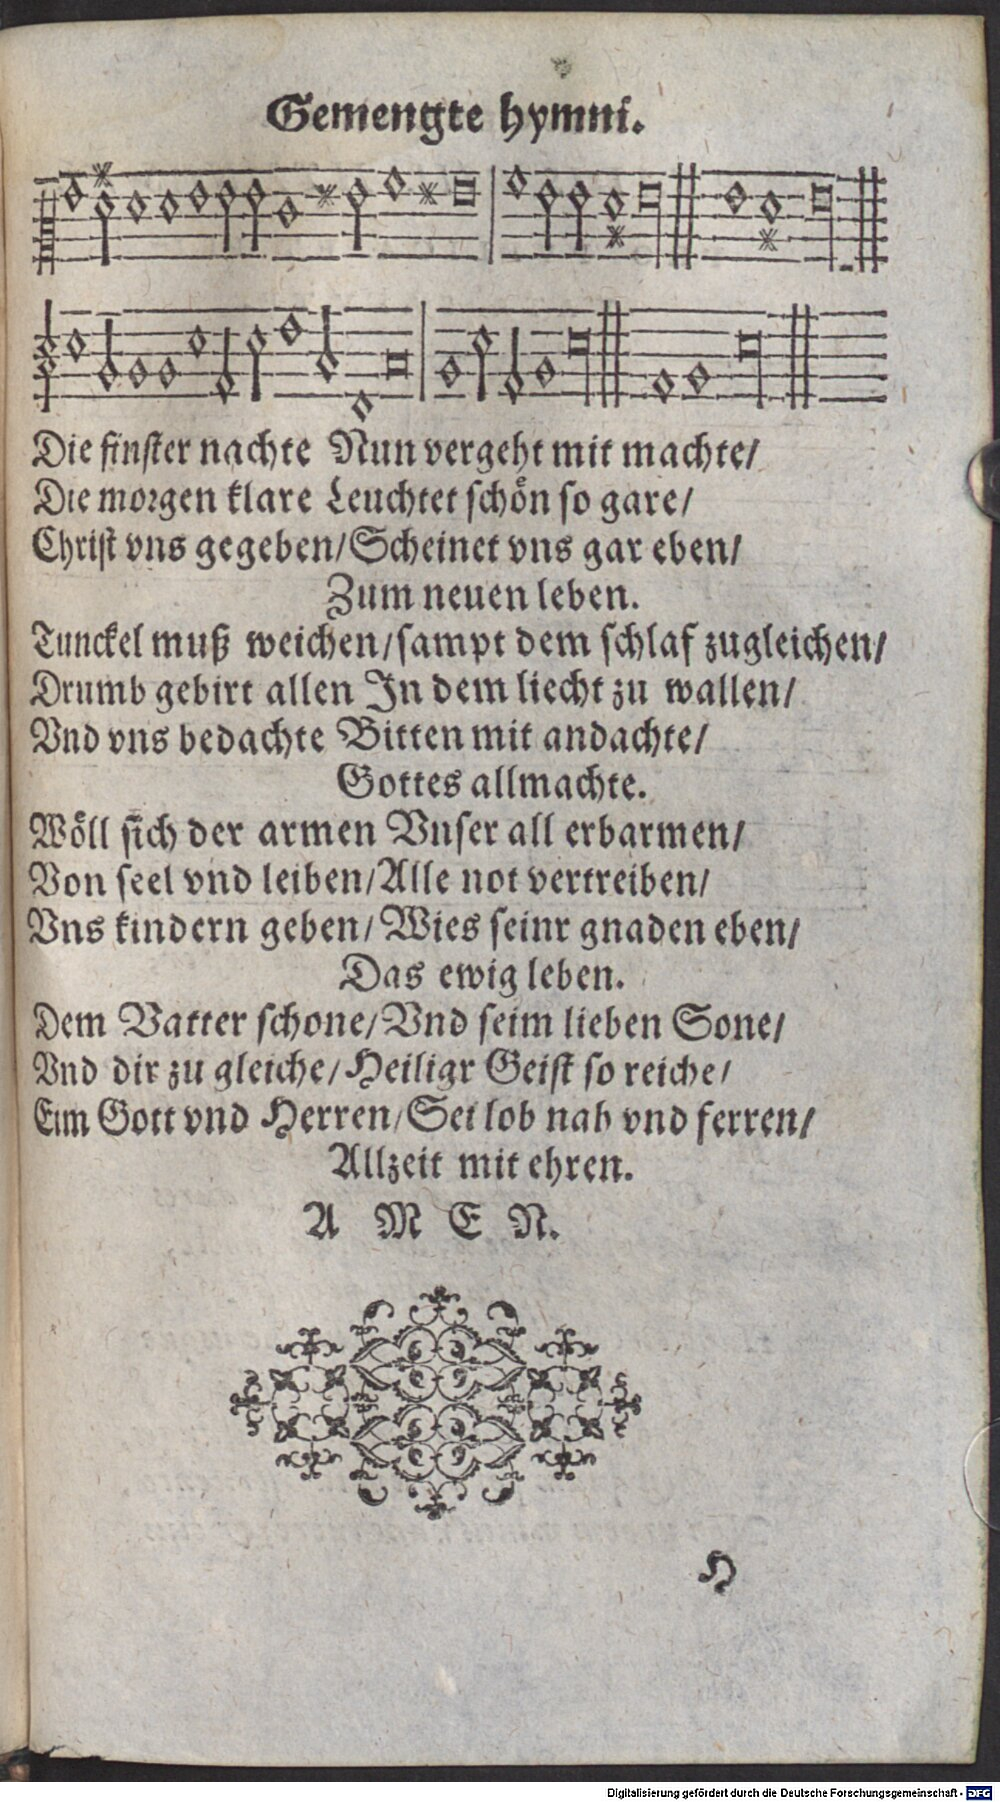 Gemengte hymni.
Die finster nachte Nun vergeht mit machte/
Die morgen klare Leuchtet schön so gare/
Christ vns gegeben/Scheinet vns gar eben/
Zum neuen leben.
Tunckel muß weichen/sampt dem schlaf zugleichen/
Drumb gebirt allen In dem liecht zu wallen/
Vnd vns bedachte Bitten mit andachte/
Gottes allmachte.
Wöll sich der armen Vnser all erbarmen/
Von seel vnd leiben/Alle not vertreiben/
Vns kindern geben/ Wies seinr gnaden eben/
Das ewig leben.
Dem Vatter schone/Vnd seim lieben Sone/
Vnd dir zu gleiche/Heiligr Geist so reiche/
Eim Gott vnd Herren/Sei lob nah vnd ferren/
Allzeit mit ehren.
A M E N.
H
Digitalisierung gefördert durch die Deutsche Forschungsgemeinschaft - DFG